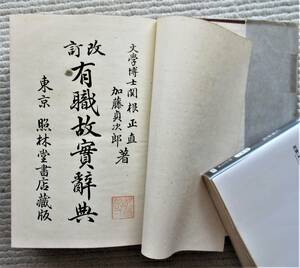 文學博士関根正直
加藤貞次郎 著
改訂
有職故實辭典
東京 照林堂書店藏版